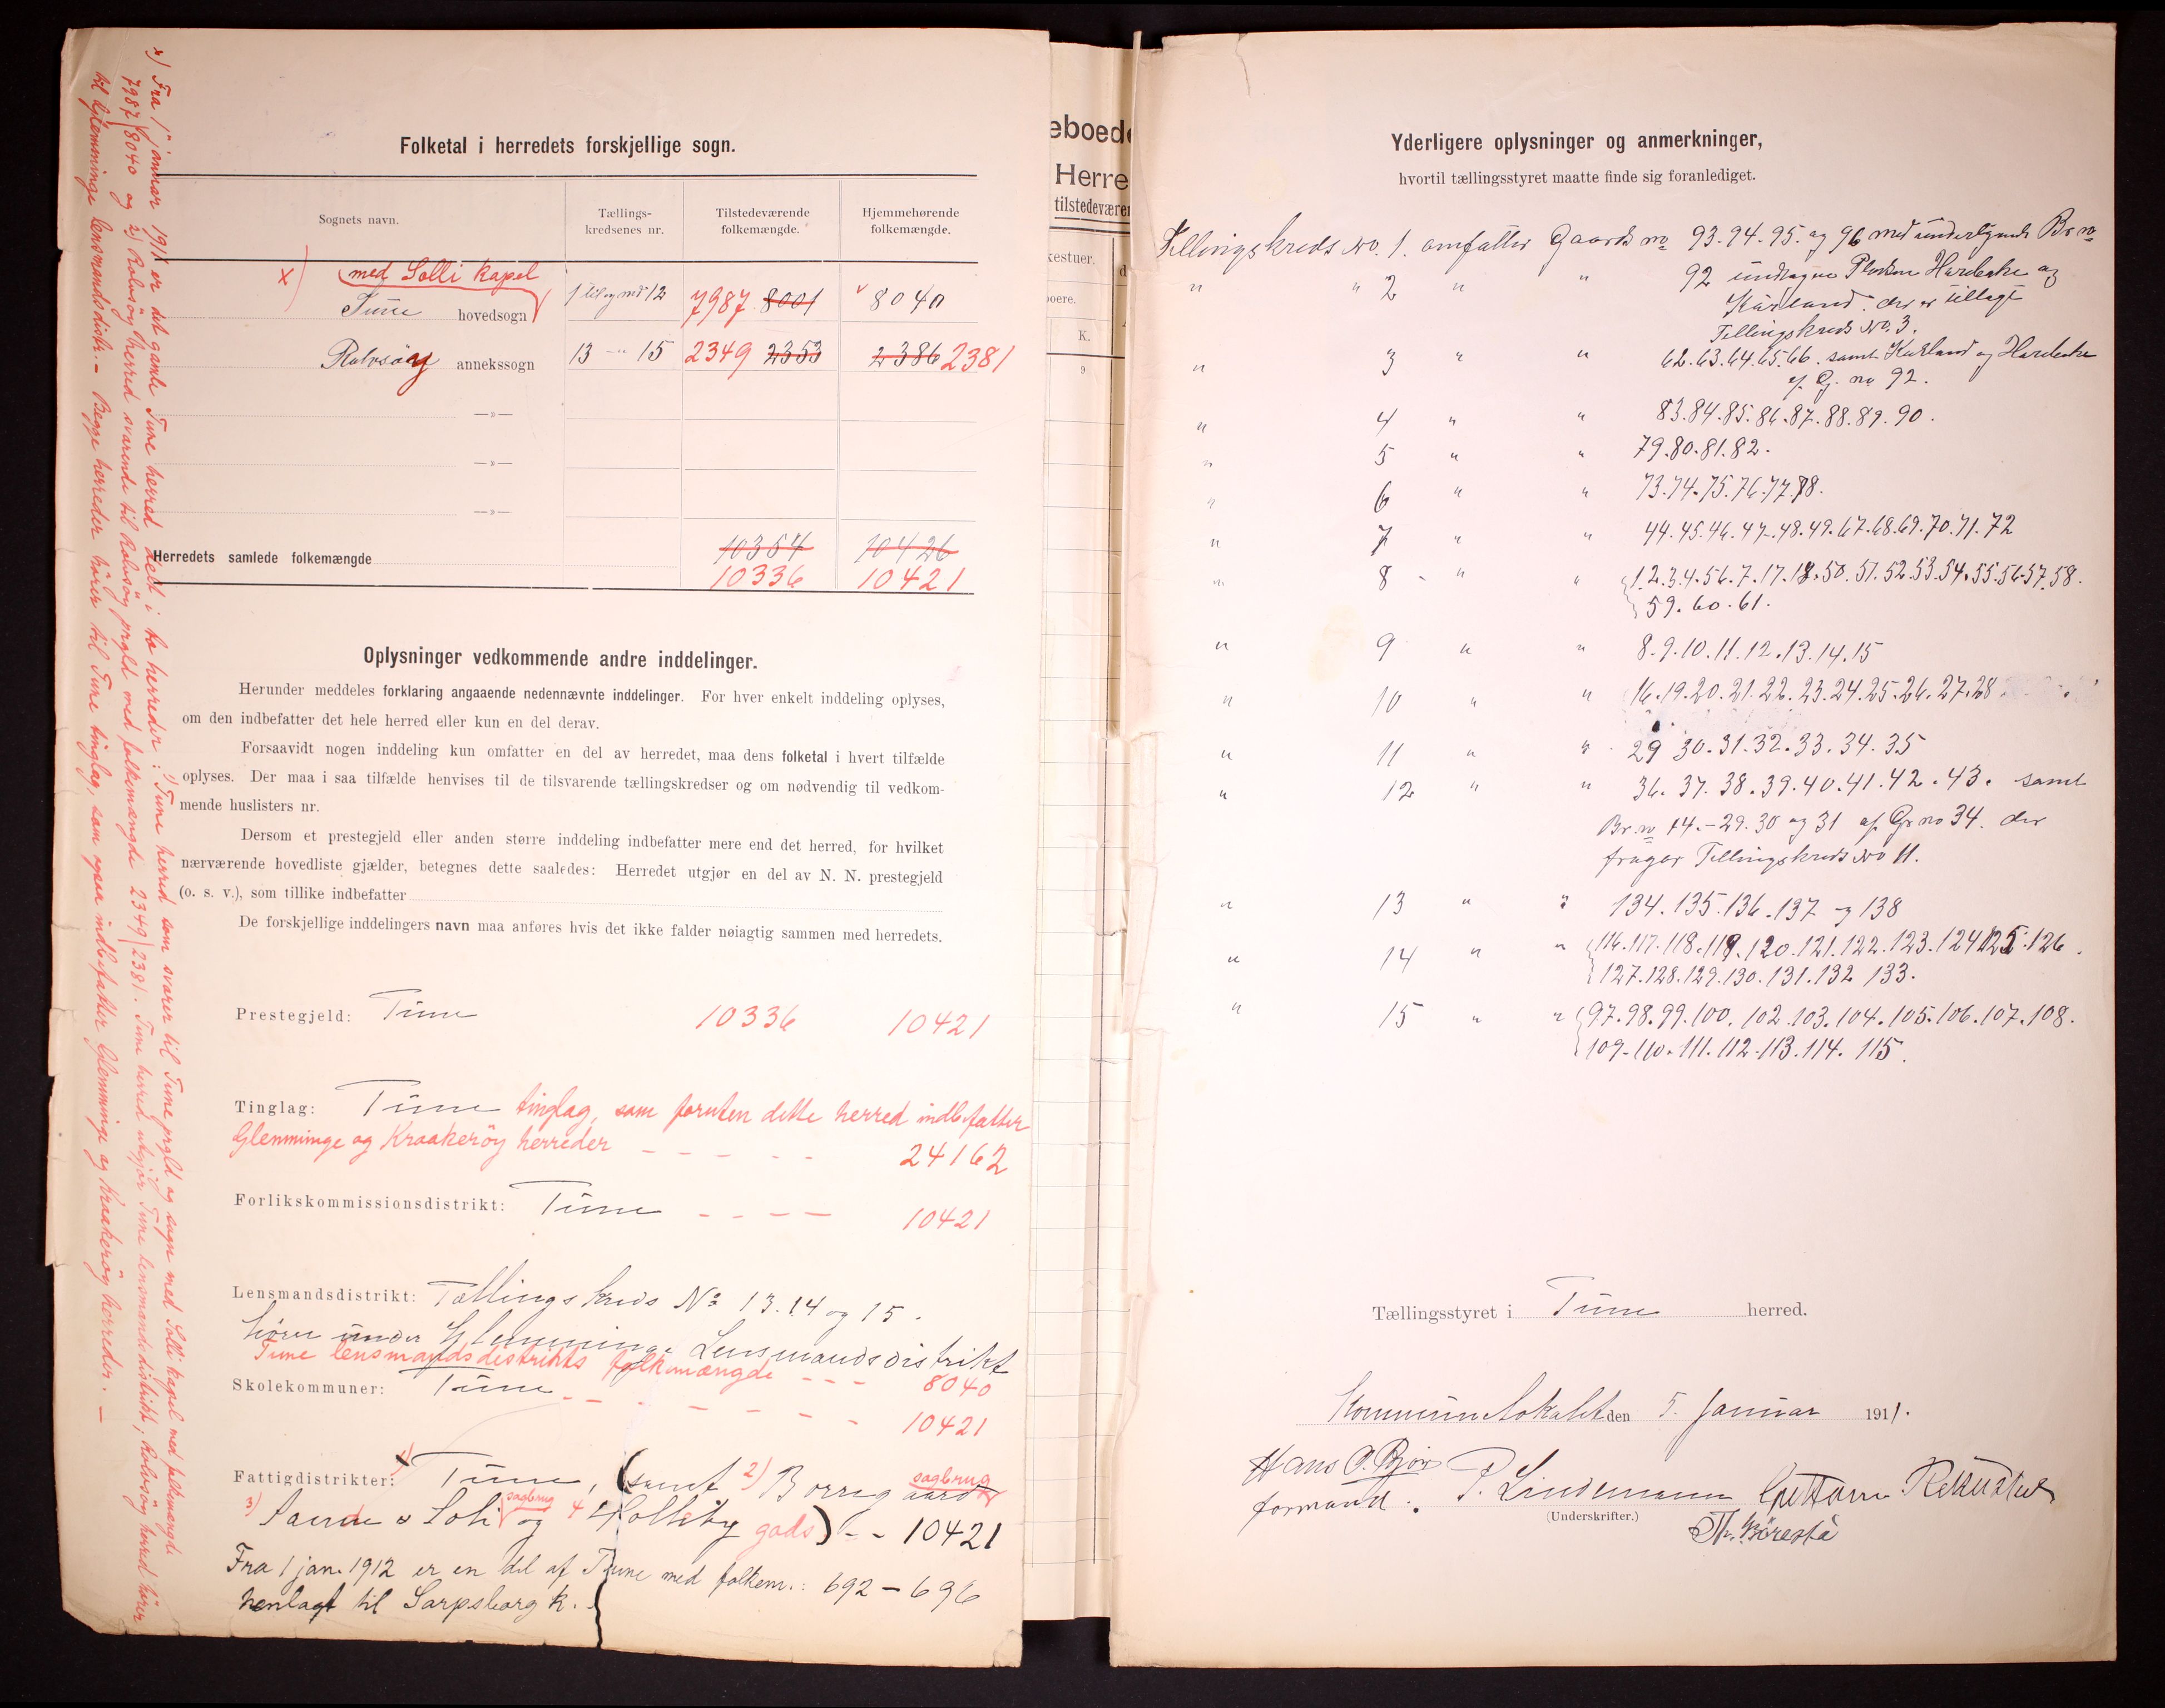 Folketal i herredets forskjellige sogn.
Sognets navn.
Tællings-
kredsenes nr.
Tilstedeværende
folkemængde.
Hjemmehørende
folkemængde.
x) (med Solli kapel
Tune hovedsogn 1 til og md 12 7987 8001 8040
Rolvsøy annekssogn 13 -"- 15 2349 2353 2386 2381
—»—
—»—
—»—
Herredets samlede folkemængde 10354 10426
10336 10421
Oplysninger vedkommende andre inddelinger.
Herunder meddeles forklaring angaaende nedennævnte inddelinger. For hver enkelt inddeling oplyses,
om den indbefatter det hele herred eller kun en del derav.
Forsaavidt nogen inddeling kun omfatter en del av herredet, maa dens folketal i hvert tilfælde
oplyses. Der maa i saa tilfælde henvises til de tilsvarende tællingskredser og om nødvendig til vedkom-
mende huslisters nr.
Dersom et prestegjeld eller anden større inddeling indbefatter mere end det herred, for hvilket
nærværende hovedliste gjælder, betegnes dette saaledes: Herredet utgjør en del av N. N. prestegjeld
(o. s. v.), som tillike indbefatter
De forskjellige inddelingers navn maa anføres hvis det ikke falder nøiagtig sammen med herredets.
Prestegjeld: Tune 10336 10421
Tinglag: Tune tinglag, som foruten dette herred indbefatter
Glemminge og Kraakerøy herreder - - - - - 24162
Forlikskommissionsdistrikt: Tune - - - - 10421
Lensmandsdistrikt: Tællings Kreds No 13. 14 og 15.
hører under Glemminge Lensmandsdistrikt
Tune lensmandsdistrikts folkemængde - - - 8040
Skolekommuner: Tune - - - - - - -
10421
Fattigdistrikter: 1) Tune, (samt 2) Borregaard sagbrug
3) Sande & Soli sagbrug og 4 Holleby gods) - - 10421
Fra 1 jan. 1912 er en del af Tune med folkem.: 692 – 696
henlagt til Sarpsborg k.
x) Fra 1ste januar 1911 er det gamle Tune herred delt i to herreder: 1) Tune herred som svarer til Tune prgld og sogn med Solli kapel med folkemængde
7987/8040 og 2) Rolvsøy herred svarende til Rolvsøy prgld med folkemængde 2349/2381. Tune herred utgjør Tune lensmandsdistrikt, Rolvsøy herred hører
til Glemminge lensmandsdistr. – Begge herreder hører til Tune tinglag, som ogsaa indbefatter Glemminge og Kraakerøy herreder. –
eboed
Herre
tilstedevære
kestuer.
oere.
K.
9
Yderligere oplysninger og anmerkninger,
hvortil tællingsstyret maatte finde sig foranlediget.
Tellingskreds No. 1. omfatter Gaards no 93. 94. 95. og 96 med underligende Br. no
" " 2 " " 92 undtagen Pladsene Hardeske og
Kurland. der er tillagt
Tellingskreds No. 3.
" 3 " " 62. 63. 64. 65. 66. samt Kurland og Hardeske
af G. no 92.
" 4 " " 83. 84. 85. 86. 87. 88. 89. 90.
" 5 " " 79. 80. 81. 82.
" 6 " " 73. 74. 75. 76. 77. 78.
" 7 " " 44. 45. 46. 47. 48. 49. 67. 68. 69. 70. 71. 72
" 8 " " 1. 2. 3. 4. 5 6. 7. 17. 18. 50. 51. 52. 53. 54. 55. 56. 57. 58.
59. 60. 61.
" 9 " " 8. 9. 10. 11. 12. 13. 14. 15
" 10 " " 16. 19. 20. 21. 22. 23. 24. 25. 26. 27. 28
" 11 " " 29 30. 31. 32. 33. 34. 35
" 12 " " 36. 37. 38. 39. 40. 41. 42. 43. samt
Br. no 14. – 29. 30 og 31 af Gr no 34. der
fragår Tellingskreds No 11.
" 13 " " 134. 135. 136. 137 og 138
" 14 " " 116. 117. 118. 119. 120. 121. 122. 123. 124 125. 126.
127. 128. 129. 130. 131. 132 133.
" 15 " " 97. 98. 99. 100. 102. 103. 104. 105. 106. 107. 108.
109. 110. 111. 112. 113. 114. 115.
Tællingsstyret i Tune herred.
Kommunelokalet den 5. Januar 1911.
Hans O. Bjør P. Lindemann
formand.
(Underskrifter.)